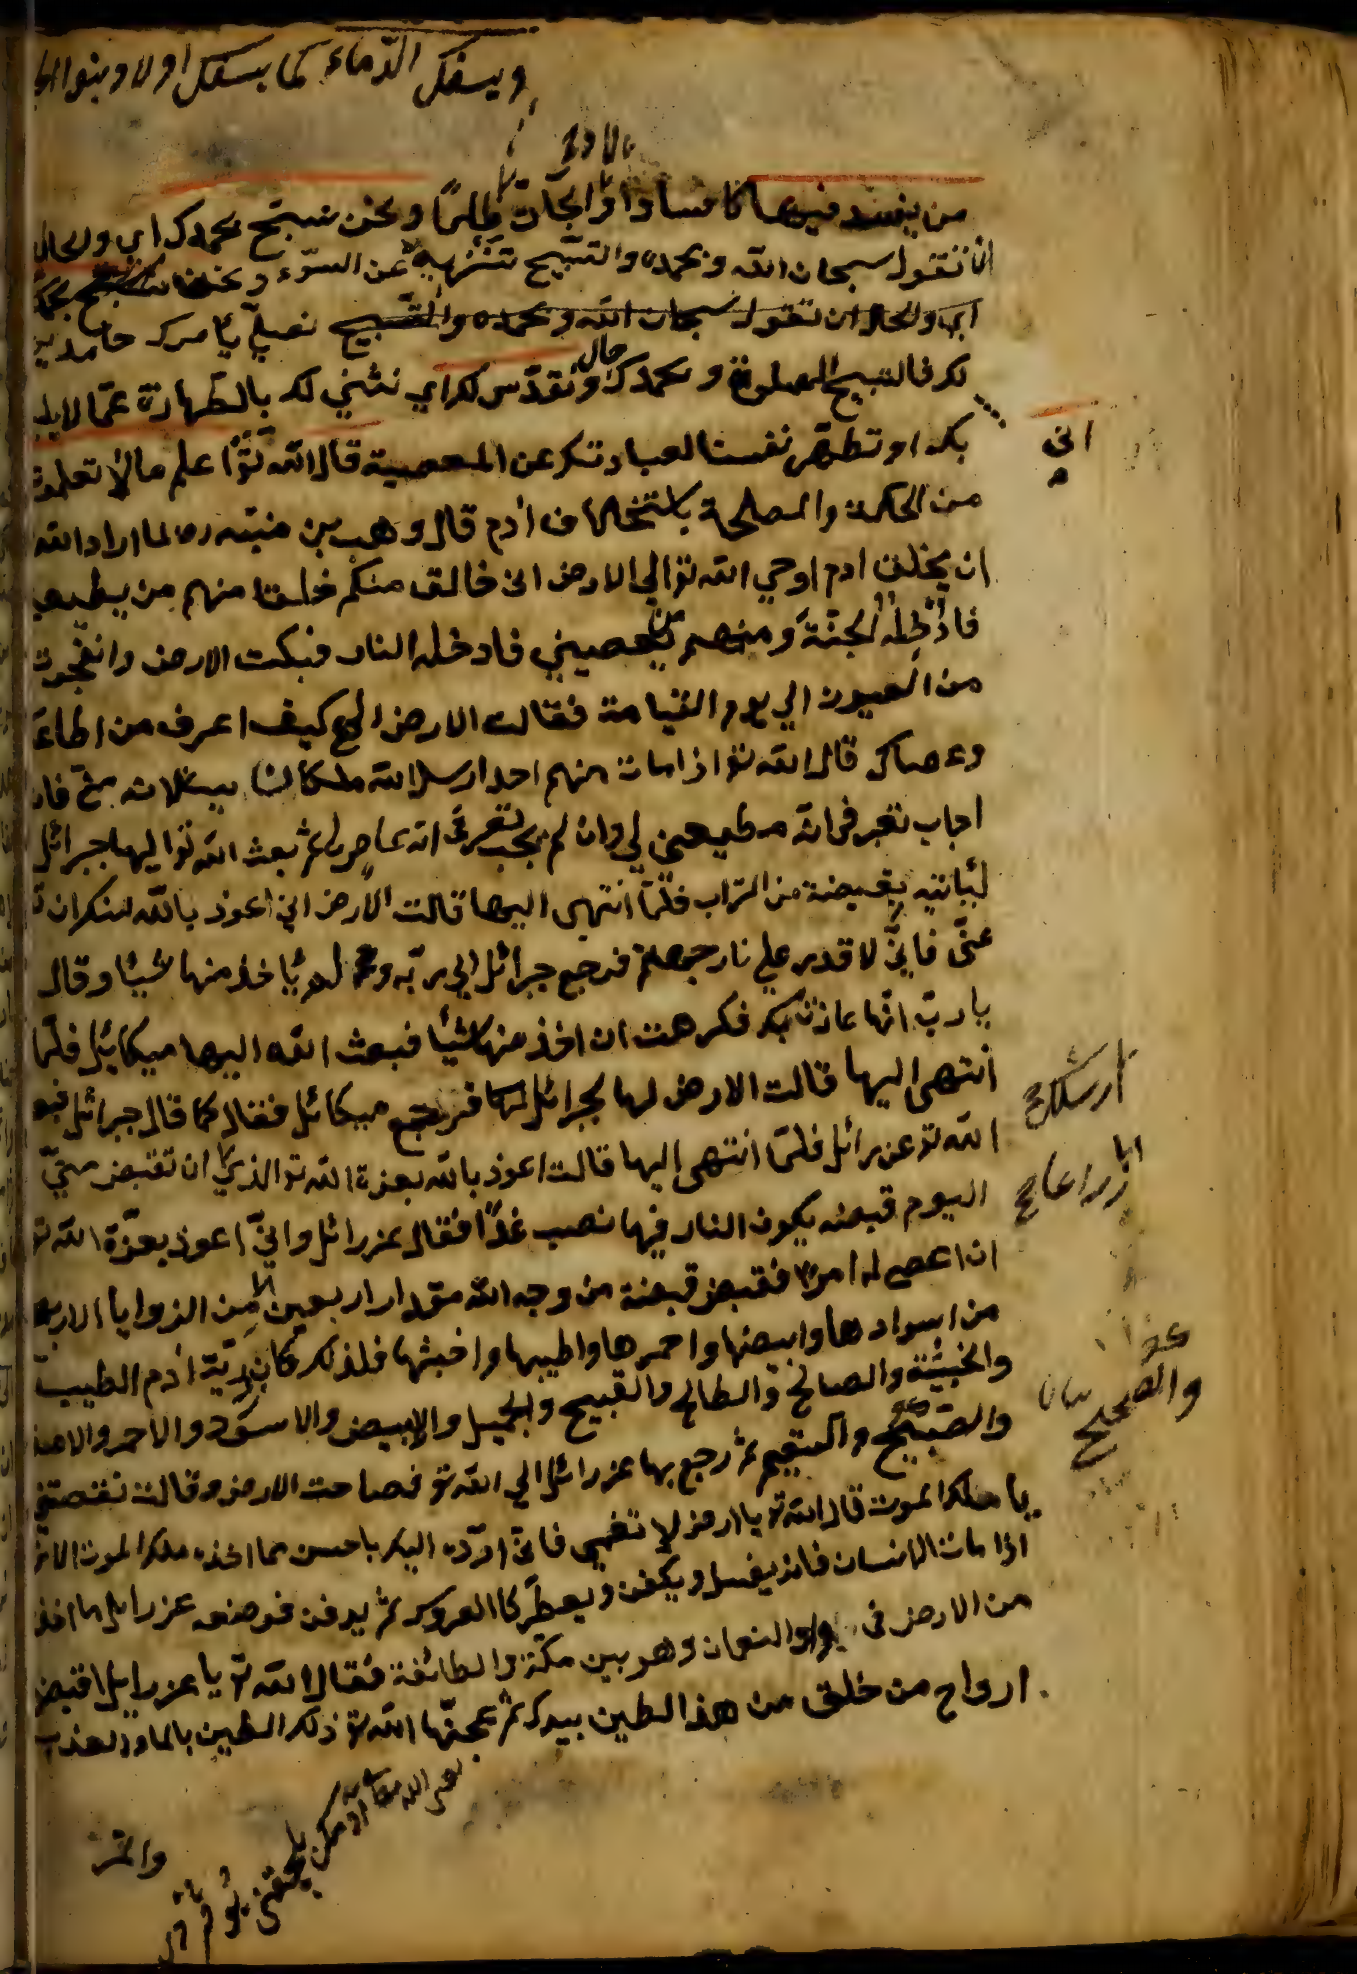 ويسفك الدّماء كما يسفك اولاد بنوا الجا
بالارض
من يفسد فيها كما فسادا والجانّ ظلمًا ونحن نسبّح بحمدك اي والحال
انا نقول سبحان الله وبحمده والتسبيح تنزيه عن السوّء ونحن نسبح بحمدك
اي والحال ان نقول سبحان الله وبحمده والتسبيح نصلّي بامرك حامدين
لك فالتسبيح الصلوة وبحمدك حال ونقدّس لك اي نثني لك بالطّهارة عمّا لا يليق
بك او تطهّر نفسنا لعبادتك عن المعصية قال الله تعٓ اعلم ما لا تعلمون
اني
من الحكمة والمصلحة باستخلاف ادم قال وهب بن منبّه ره لما اراد الله
ان يخلق ادم اوحي الله تعٓ الي الارض اني خالق منكم خلقا منهم من يطيعني
فادخله الجنّة ومنهم من يعصيني فادخله النار فبكت الارض وانفجرت
من العيون الي يوم القيامة فقالت الارض الهي كيف اعرف من اطاعك
وعصاك قال الله تعٓ اذا مات منهم احد ارسل الله ملكان يسئلانه عنّي فان
اجاب تعرفي انه مطيعني لي وان لم يجب تعرفي انه عاص لي ثم بعث الله تعٓ اليها جبرائل
ليأتيه بقبضة من التراب فلمّا انتهى اليها قالت الارض اني اعوذ بالله منك ان
عنّي فانّي لا اقدر علي نار جهنم فرجع جبرائل الي ربّه ولم يأخذ منها شيئا وقال
يا ربّ انّها عاذت بك فكرهت ان اخذ منها شيئا فبعث الله اليها ميكائل فلمّا
انتهى اليها قالت الارض لها لجبرائل فرجع ميكائل فقال كما قال جبرائل فبعث
الله تعٓ عزرائل فلمّا انتهى اليها قالت اعوذ بالله بعزة الله تعٓ الذي ان تقبض منّي
اليوم قبضه يكون النار فيها نصب غدًا فقال عزرائل وانّي اعوذ بعزّة الله تعٓ
ان اعصي له امرا فقبض قبضة من وجه الله مقدار اربعين من الزوايا الاربع
من اسوادها وابيضها واحمرها واطيبها واخبثها فلذلك كان ذريّة ادم الطيب
والخبيثة والصالح والطالح والقبيح والجميل والابيض والاسود والاحمر والاصفر
والصّحيح والسقيم ثم رجع بها عزرائل الي الله تعٓ فصاحت الارض وقالت نقصتني
والصحيح
يا ملك الموت قال الله تعٓ يا ارض لا تغمّي فانّي اردّه اليك باحسن مما اخذه ملك الموت الان
اذا مات الانسان فانه يغسل ويكفن ويعطّر كالعروس ثم يدفن فوضعه عزرايل ما اخذ
من الارض في وادي النعمان وهو بين مكّة والطائفة فقال الله تعٓ يا عزرايل اقبض
ارواح من خلق من هذا الطين بيدك ثم عجنّها الله تعٓ ذلك الطين بالماء العذب
والمرّ